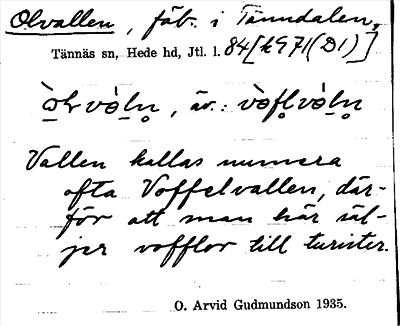 Olvallen, fäb. i Tänndalen,
Tännäs sn, Hede hd, Jtl. l. 84 [kG71(D1)]
o̠lvàl̠n̥, äv.: vòfl̥vàl̠n̥
Vallen kallas numera
ofta Voffelvallen, där-
för att man här säl-
jer vofflor till turister.
O. Arvid Gudmundson 1935.